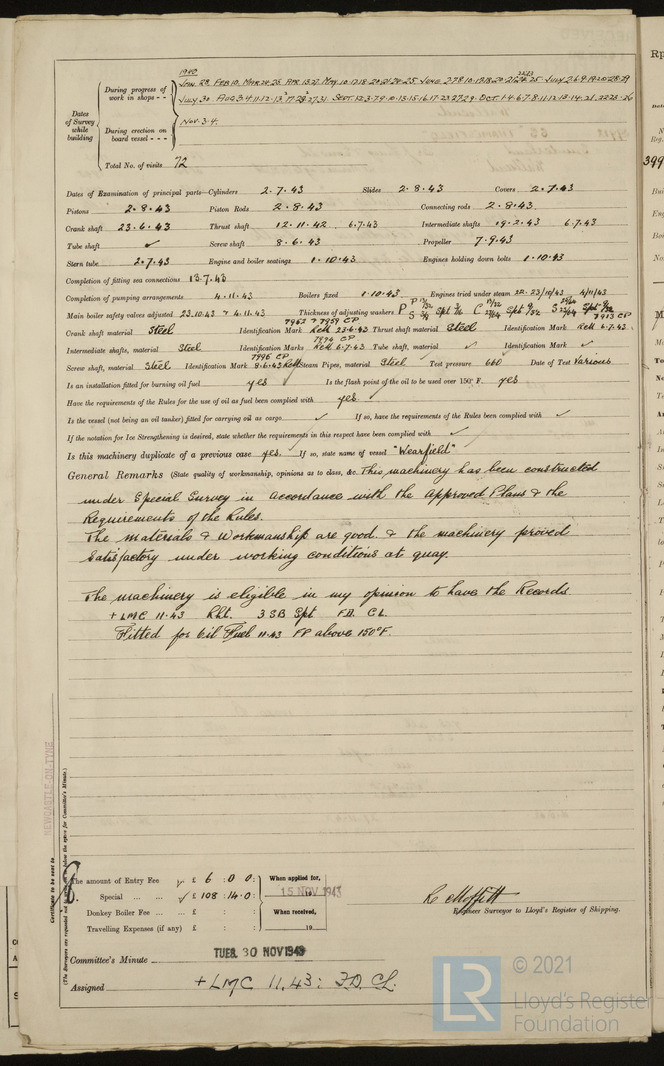 1943
Jan. 28. Feb 19. Mar 24.25. Apr. 13.27. May. 10.17.18.20.21.24.25. June 2.7.8.10.17.18.20.21.25. July 2.6.9.19.20.28.29
During progress of work in shops - -
July 30. Aug 3.4.11.12.13.17.27.31. Sept. 1.2.3.7.9.10.13.15.16.17.23.27.29. Oct. 1.4.6.7.8.11.12.13.14.21.22.25.26
Dates of Survey while building
During erection on board vessel - - -
Nov. 3.4.
Total No. of visits 72
Dates of Examination of principal parts—Cylinders 2.7.43 Slides 2.8.43 Covers 2.7.43
Pistons 2.8.43 Piston Rods 2.8.43 Connecting rods 2.8.43
Crank shaft 23.6.43 Thrust shaft 12.11.42 6.7.43 Intermediate shafts 19.2.43 6.7.43
Tube shaft ✓ Screw shaft 8.6.43 Propeller 7.9.43
Stern tube 2.7.43 Engine and boiler seatings 1.10.43 Engines holding down bolts 1.10.43
Completion of fitting sea connections 13.7.43
Completion of pumping arrangements 4.11.43 Boilers fixed 1.10.43 Engines tried under steam 22.23/10/43 4/11/43
Main boiler safety valves adjusted 23.10.43 & 4.11.43 Thickness of adjusting washers
7957 & 7959 CP
Crank shaft material Steel Identification Mark 23.6.43 Thrust shaft material Steel Identification Mark 7913 CP 6.7.43
7994 CP
Intermediate shafts, material Steel Identification Marks 6.7.43 Tube shaft, material ✓ Identification Mark ✓
7996 CP
Screw shaft, material Steel Identification Mark 8.6.43 Steam Pipes, material Steel Test pressure 660 Date of Test Various
Is an installation fitted for burning oil fuel yes Is the flash point of the oil to be used over 150° F. yes
Have the requirements of the Rules for the use of oil as fuel been complied with yes
Is the vessel (not being an oil tanker) fitted for carrying oil as cargo ✓ If so, have the requirements of the Rules been complied with ✓
If the notation for Ice Strengthening is desired, state whether the requirements in this respect have been complied with ✓
Is this machinery duplicate of a previous case yes. If so, state name of vessel "Wearfield"
General Remarks (State quality of workmanship, opinions as to class, &c. This machinery has been constructed
under Special Survey in accordance with the Approved Plans & the
Requirements of the Rules.
The materials & Workmanship are good. & the machinery proved
Satisfactory under working conditions at quay.
The machinery is eligible in my opinion to have the Records
+ LMC 11.43 Rht. 3 SB Spt F.D. CL.
Fitted for Oil Fuel 11.43 FP above 150°F.
NEWCASTLE-ON-TYNE
Certificate to be sent to
The amount of Entry Fee £ 6 : 0 : 0 : When applied for,
Special ... ... £ 108 : 14.0 : 15 NOV 1943
Donkey Boiler Fee ... ... £ : : When received,
Travelling Expenses (if any) £ : : 19
R. Moffitt
Engineer Surveyor to Lloyd's Register of Shipping.
Committee's Minute TUES. 30 NOV 1943
Assigned + LMC 11.43: F.D. CL.
LR
© 2021
Lloyd's Register
Foundation